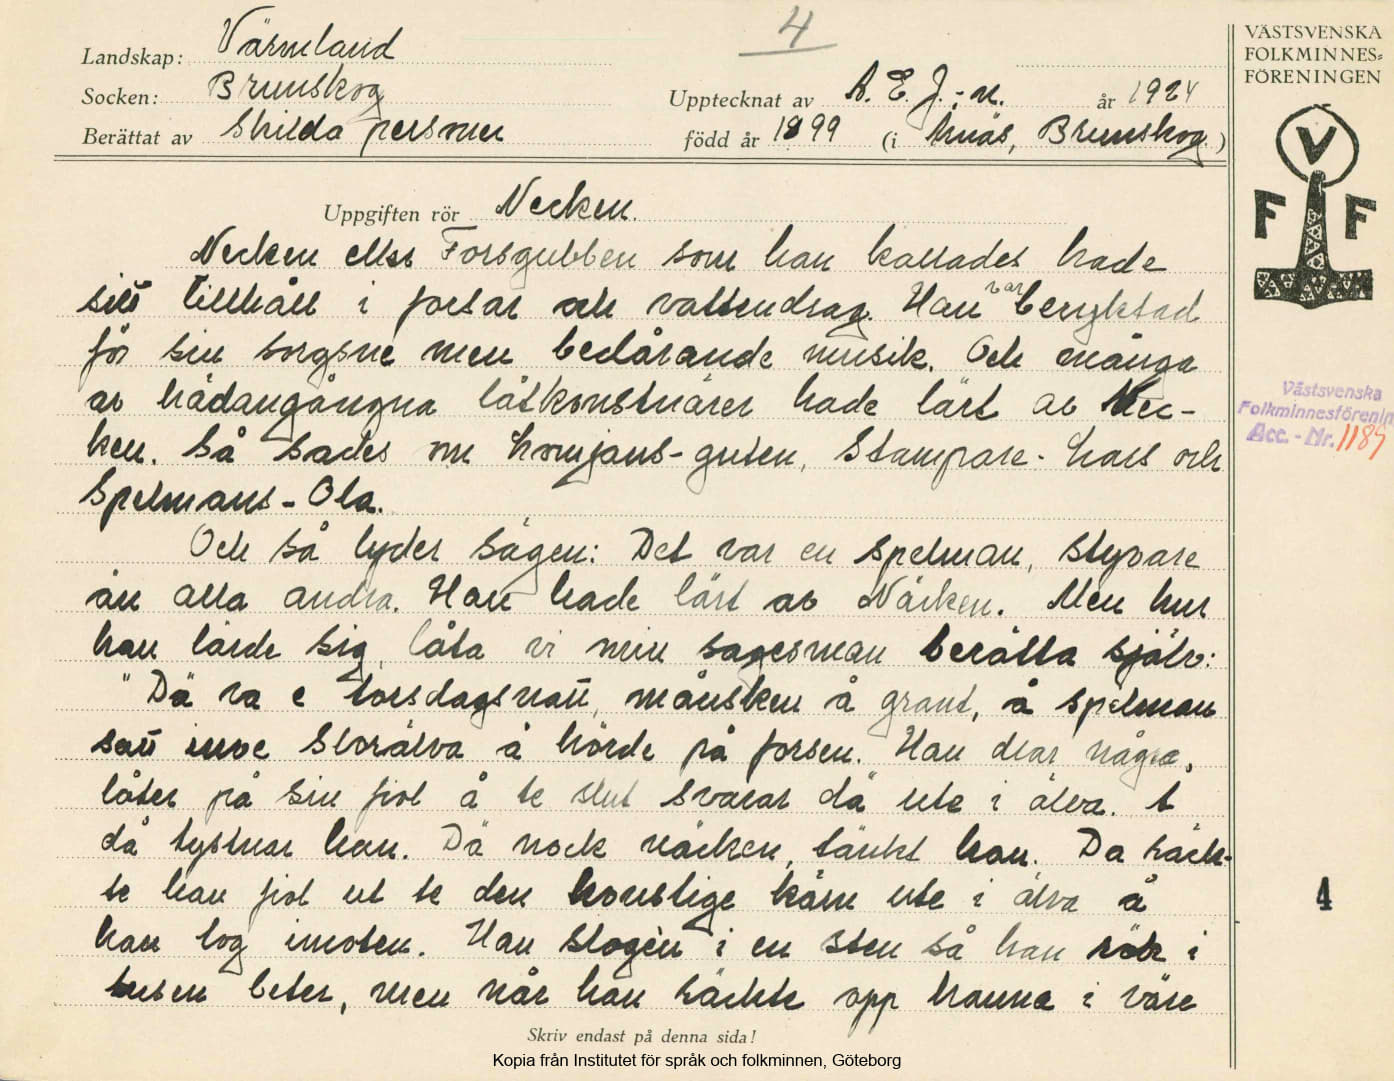 4
Landskap: Värmland
Socken: Brunskog
Berättat av Skilda personer
Upptecknat av A. E. J.-n. år 1924
född år 1899 (iÅnäs, Brunskog.)
Uppgiften rör Necken.
Necken eller Forsgubben som han kallades hade
sitt tillhåll i forsar och vattendrag. Han var beryktad
för sin sorgsne men bedårande musik. Och många
av hädangångna låtkonstnärer hade lärt av Nec-
ken. Så sades om Lomjans-guten, Stampare-Lars och
Spelmans-Ola.
Och så lyder sägen: Det var en spelman, styvare
än alla andra. Han hade lärt av Näcken. Men hur
han lärde sig, låta vi min sagesman berätta själv:
"Dä va e torsdagsnatt, månsken å grant, å spelman
satt inve Storälva å hörde på forsen. Han drar några,
låter på sin fiol å te slut svarar dä ute i älva. t
då tystnar han. Dä nock näcken, tänkt han. Da räck-
te han fiol ut te den konstige kärn ute i älva å
han tog imoten. Han slogèn i en sten så han rök i
tusen beter, men når han räckte opp hanna i väre
Skriv endast på denna sida!
Kopia från Institutet för språk och folkminnen, Göteborg
VÄSTSVENSKA
FOLKMINNES-
FÖRENINGEN
V
F F
Västsvenska
Folkminnesförenin
Acc. - Nr. 1189
4